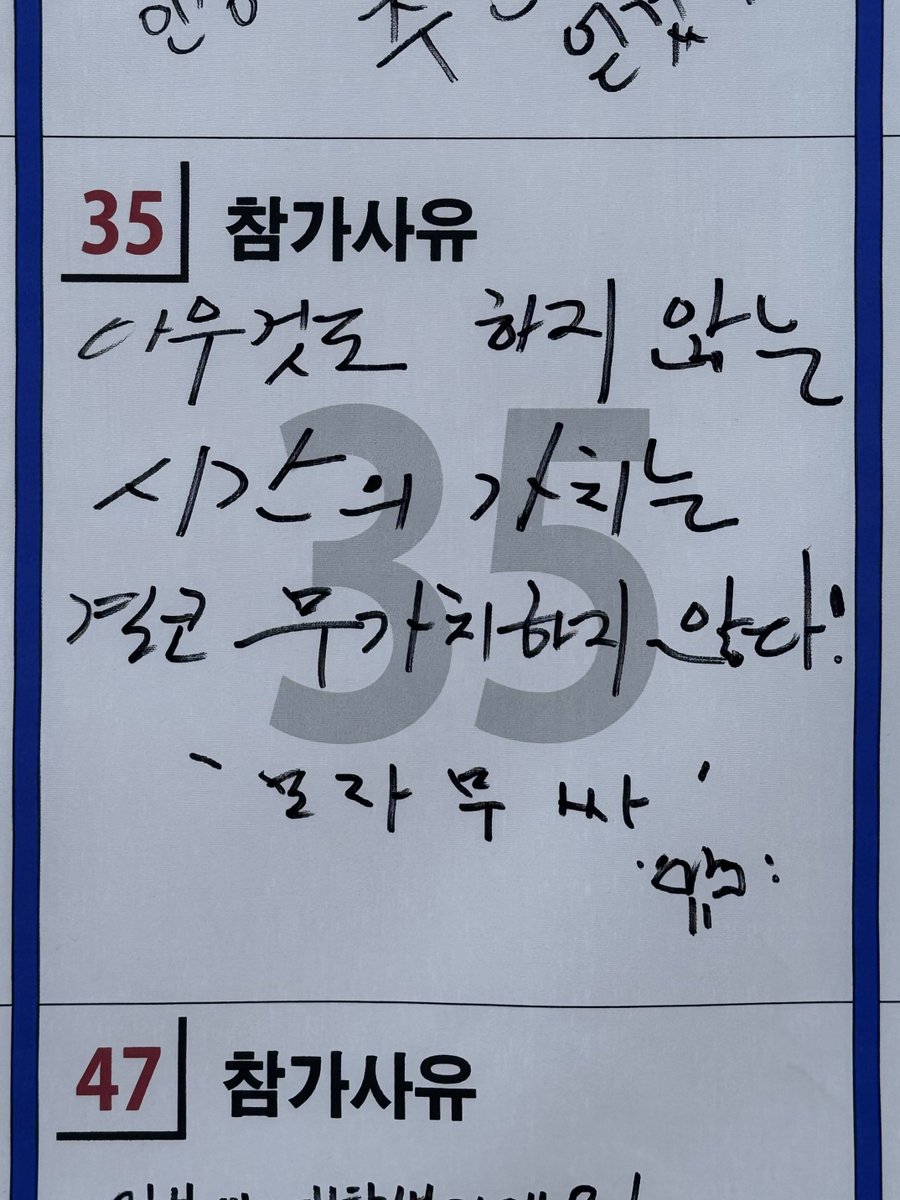 35 참가사유
아무것도 하지 않는
시간의 가치는
결코 무가치하지 않다!
'모자무싸'
35
47 참가사유